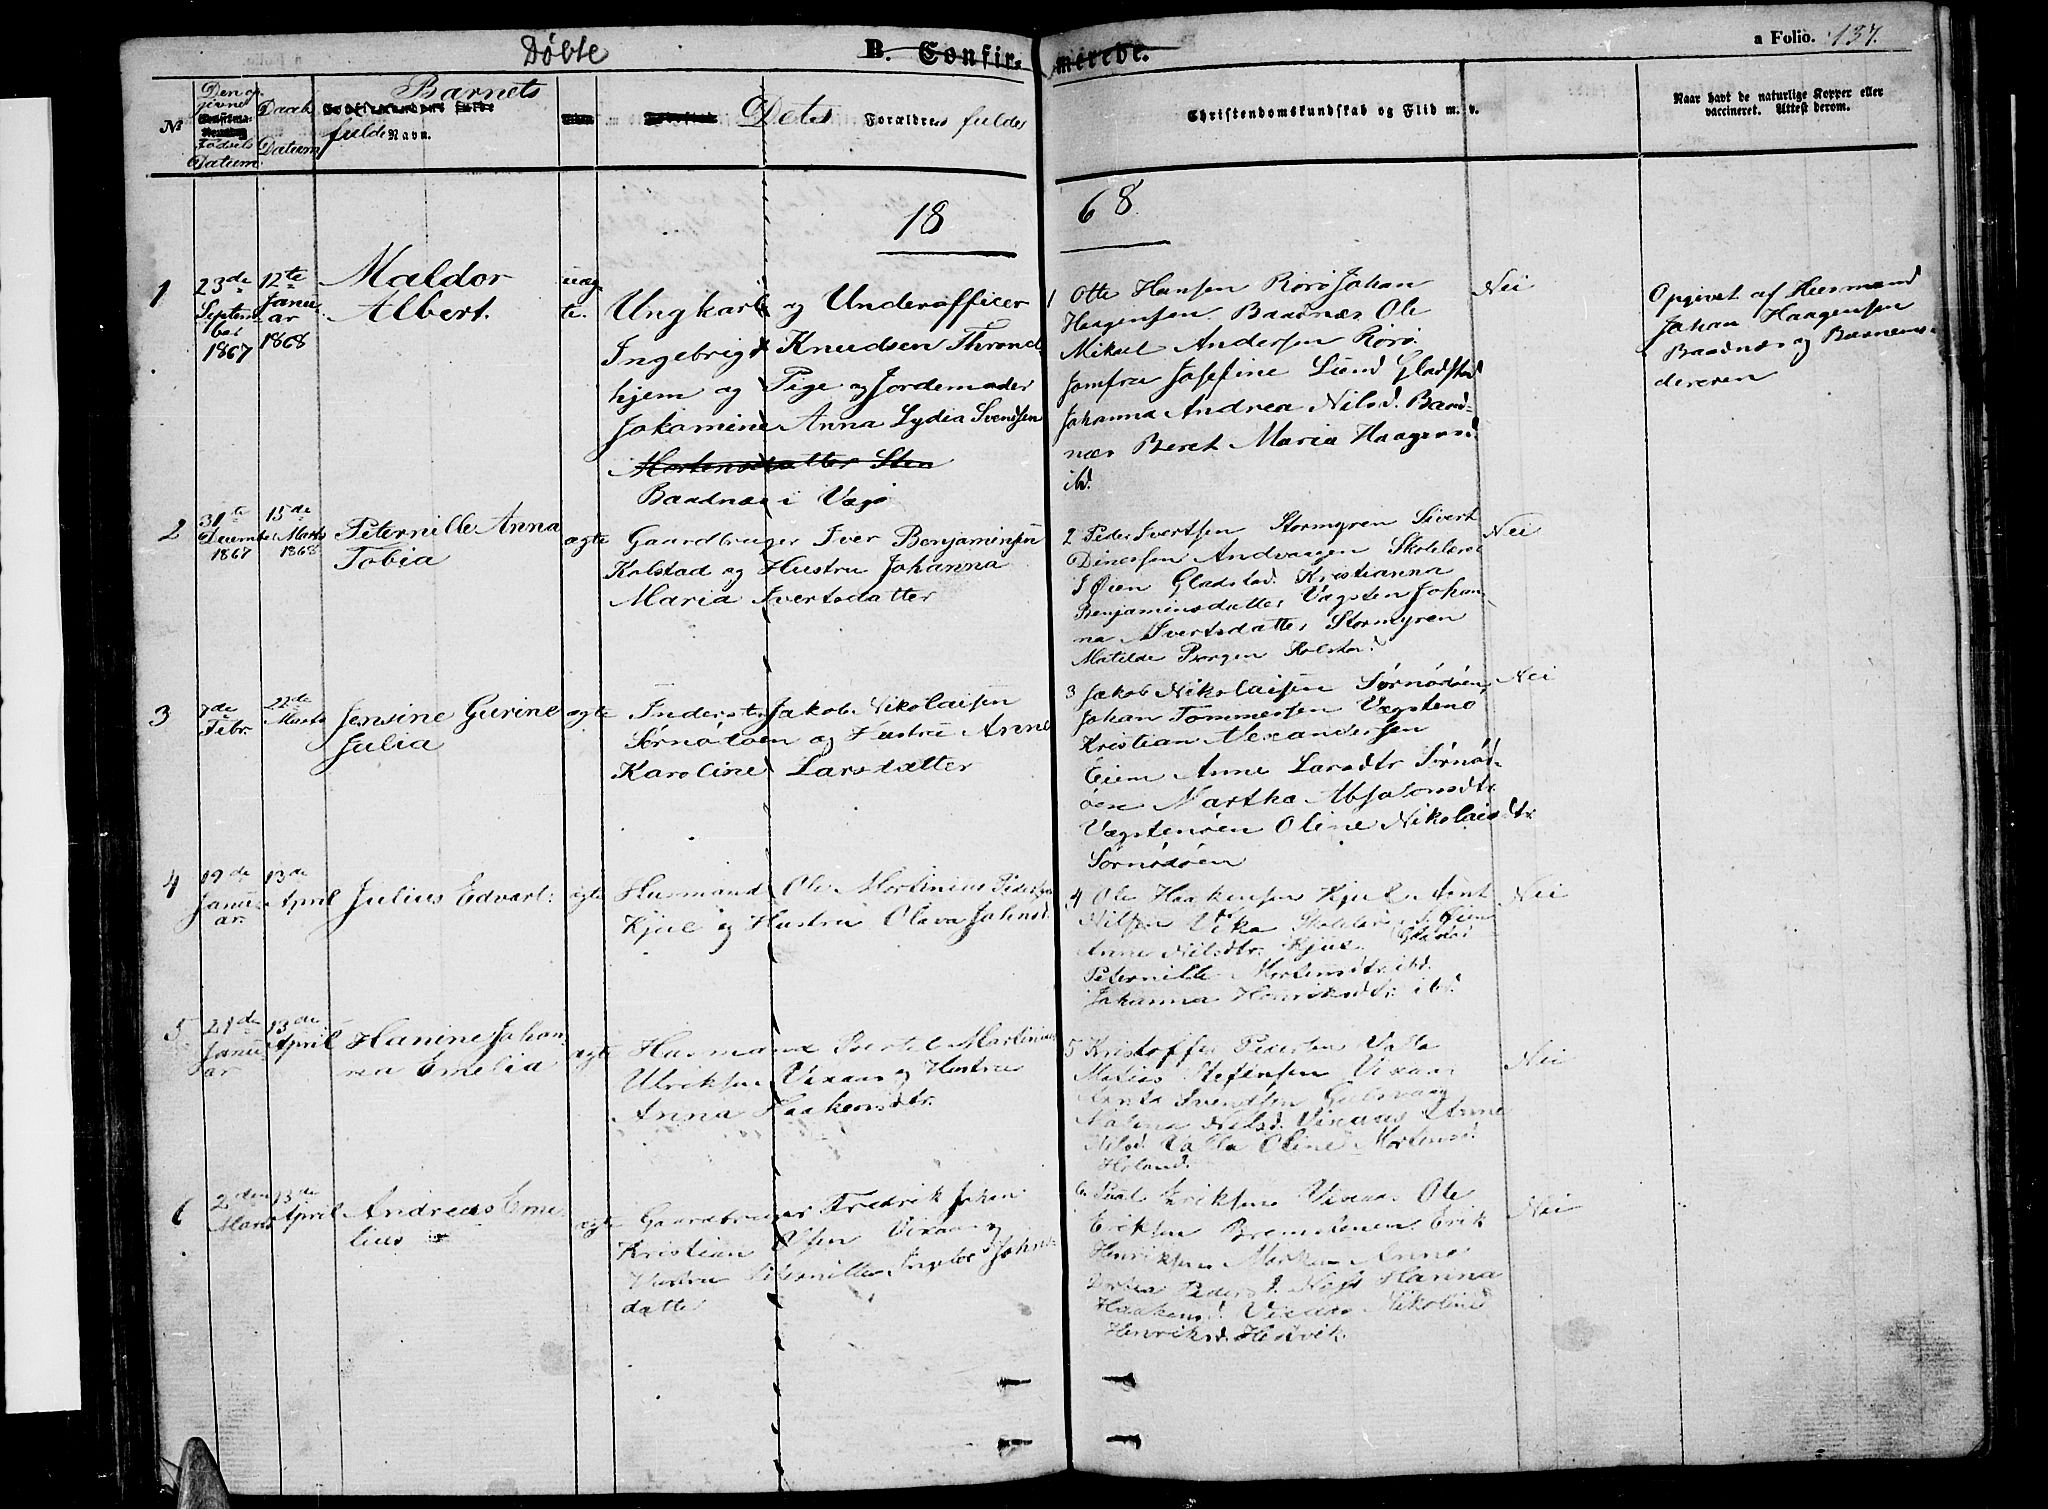 Døbte B. Confirmerede. a Folio. 137.
No
Den op
givne
Fødsels
Datum
Daab
Datum
Barnets
fulde Navn.
Dets Forældres fulde
Christendomskundskab og Flid m. v.
Naar havt de naturlige Kopper eller
vaccineret. Attest derom.
1868.
1
23de
Septem
ber
1867
12te
Janu
ar
1868
Maldor
Albert.
uæg
te.
Ungkarl og Underofficer
Ingebrigt Knudsen Thrond
hjem og Pige og Jordemoder
Jakomine Anna Lydia Svendsen
Mortensdatter Sten
Baadnæs i Vægø
1 Otte Hansen Rørø Johan
Haagensen Baadnæs Ole
Mikael Andersen Rørø
Jomfru Josefine Lund Gladstad
Johanna Andrea Nilsd. Baad=
næs Beret Maria Haagensd.
ibd.
Nei
Opgivet af Huusmand
Johan Haagensen
Baadnæs og Barnemo-
deren
2
31te
December
1867
15de
Marts
1868
Peternille Anna
Tobia
ægte
Gaardbruger Iver Benjaminsen
Kolstad og Hustru Johanna
Maria Ivertsdatter
2 Peder Ivertsen Stormyren Sivert
Dinesen Andvaagen Skolelærer
J Øien Gladstad. Kristianna
Benjaminsdatter Vægsten Johan
na Ivertsdatter Stormyren
Matilde Borgen Kolstad.
Nei
3
7de
Febr.
22de
Marts
Jensine Gurine
Julia
ægte
Inderst Jakob Nikolaisen
Sørnødøen og Hustru Anne
Karoline Larsdatter
3 Jakob Nikolaisen Sørnødøen,
Johan Tommesen Vægstenø
Kristian Alexandersen
Eiem Anne Larsdtr Sørnød-
øen Martha Absalonsdtr.
Vægstenøen Oline Nikolaisdtr.
Sørnødøen
Nei
4
19de
Janu
ar.
13de
April
Julius Edvart.
ægte
Husmand Ole Mortinius Pedersen
Kjul og Hustru Olava Johnsd.
4 Ole Haakensen Kjul Arnt
Nilsen Vika Skolelær. J. Øien
Anne Nilsdtr. Kjul. Gladstad
Peternille Mortensdtr. ibd.
Johanna Henriksdtr. ibd.
Nei
5
21de
Janu
ar
13de
April
Hanine Johan
na Emelia
ægte
Husmand Bertel Martinus
Ulriksen Vixaas og Hustru
Anna Haakensdtr.
5 Kristoffer Pedersen Valla
Matias Stefensen Vixaas
Svendsen
Malena Nilsd. Vixaas Anne
Nilsd. Valla Oline Mortensd.
Holand.
Nei
6
2den
Marts
13de
April
Andreas Eme
lius
ægte
Gaardbruger Fredrik Johan
Kristian Olsen Vixaas og
Hustru Peternille Ingeb. Johns
datter
6 Paal Eriksen Vixaas Ole
Eriksen Bremstenen Erik
Henriksen Anne
Dortea Pedersd. Hanna
Haakensd. Vixaas Nikoline
Henriksd. Hestvik.
Nei